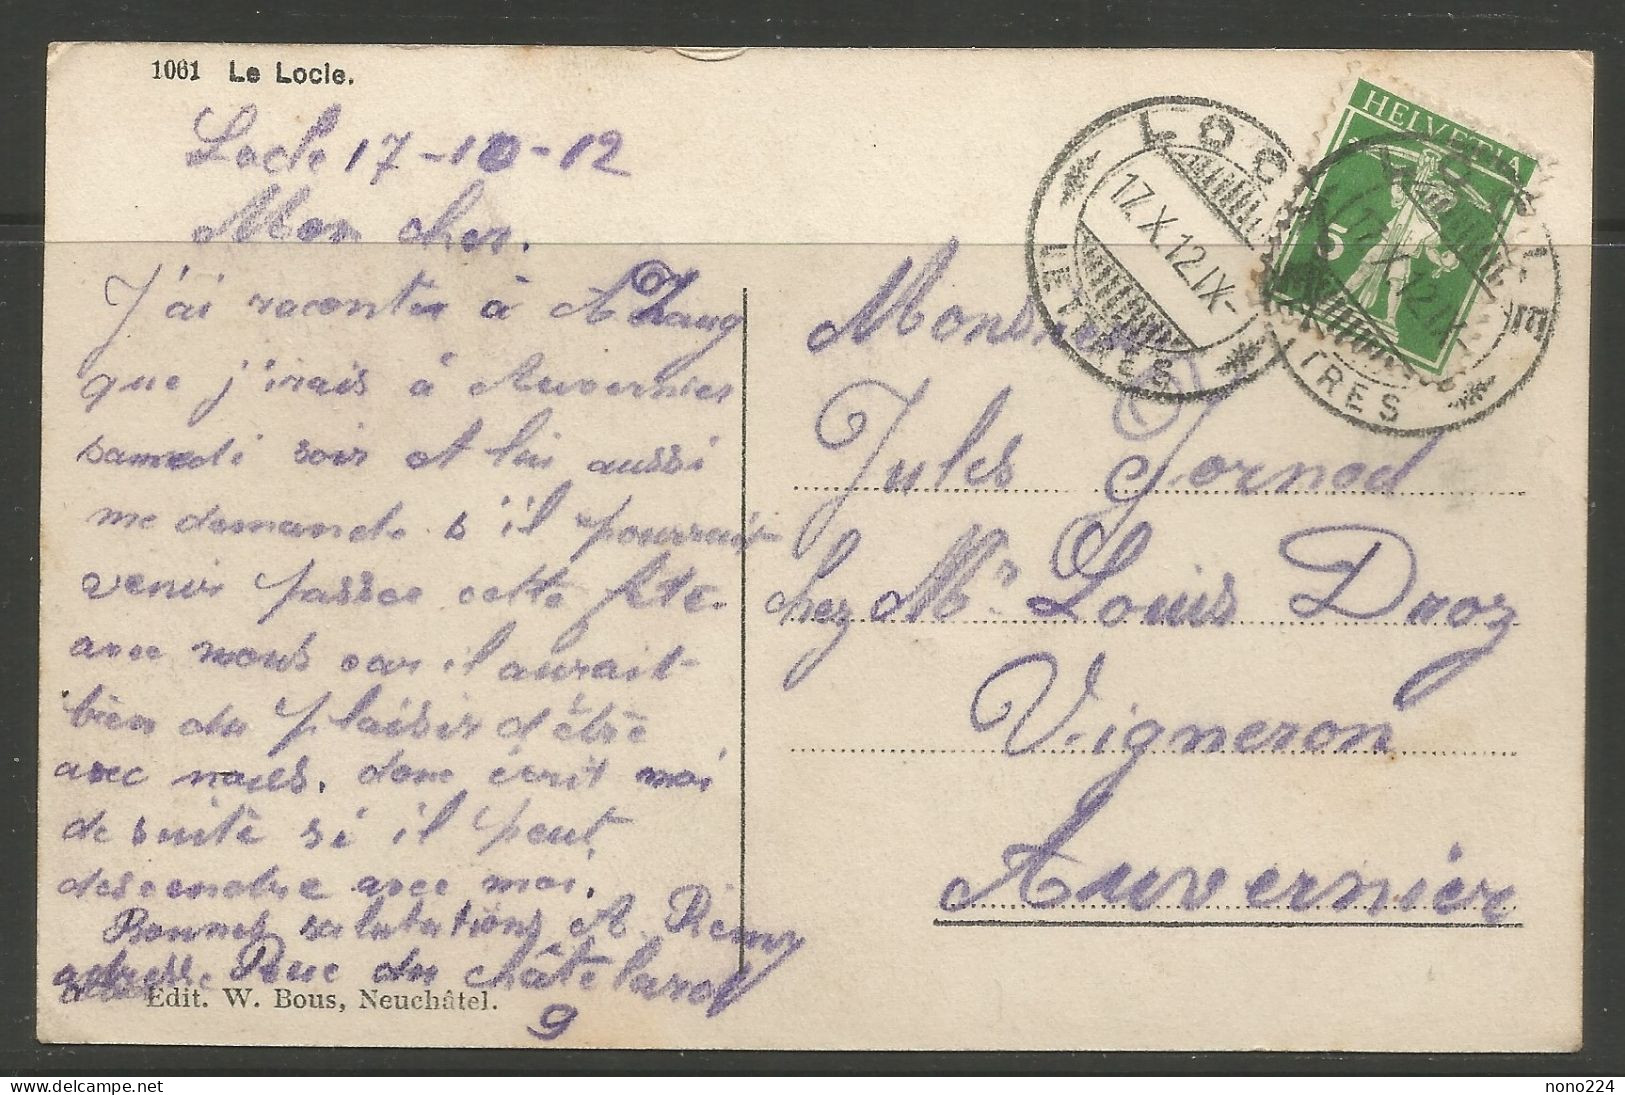 1061 Le Locle.
Locle 17-10-12
Mon cher.
J'ai raconter à A
que j'irais à Auvernier
samedi soir et lui aussi
me demande s'il pourrait
venir passer cette fête
avec nous car il aurait
bien du plaisir d'être
avec nous. donc écrit moi
de suite si il peut
descendre avec moi.
Bonnes salutations A. Remy
adresse Rue du châtelard
9
Edit. W. Bous, Neuchâtel.
LOCLE
17.X.12.IX-
LETTRES
HELVETIA
5
LOCLE
17.X.12.IX
TRES
Monsieur
Jules Jornod
chez Mr. Louis Droz
Vigneron
Auvernier
nono224